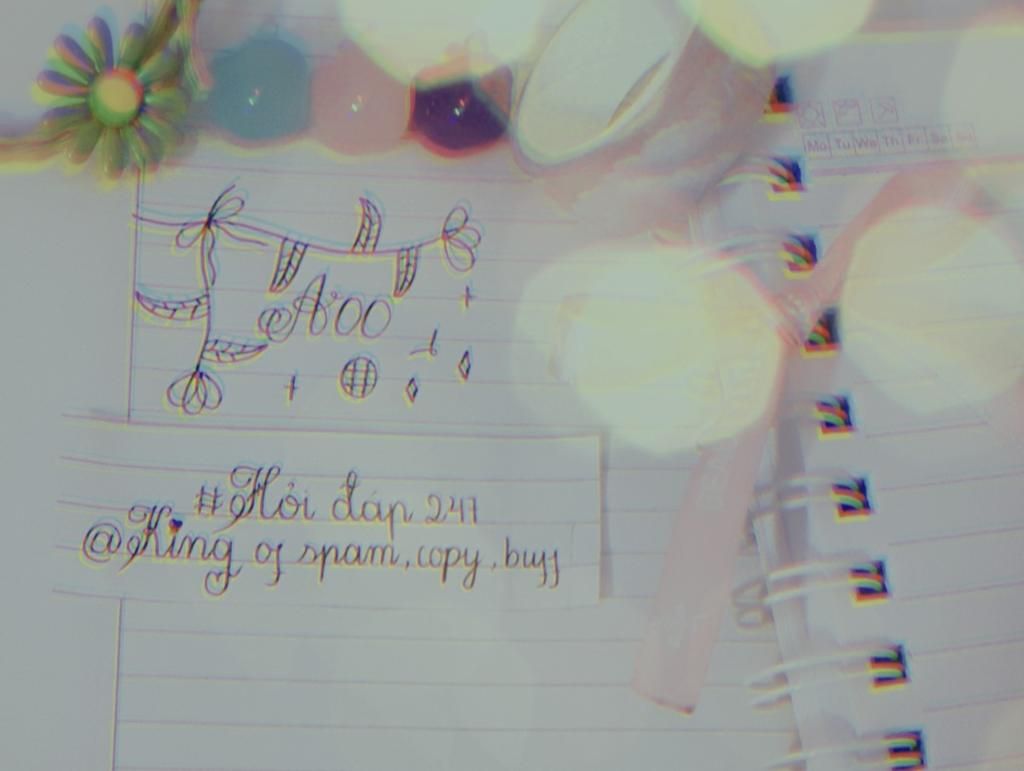 Mo Tu We Th Fr Sa Su
#Hỏi đáp 247
@King of spam, copy, buff